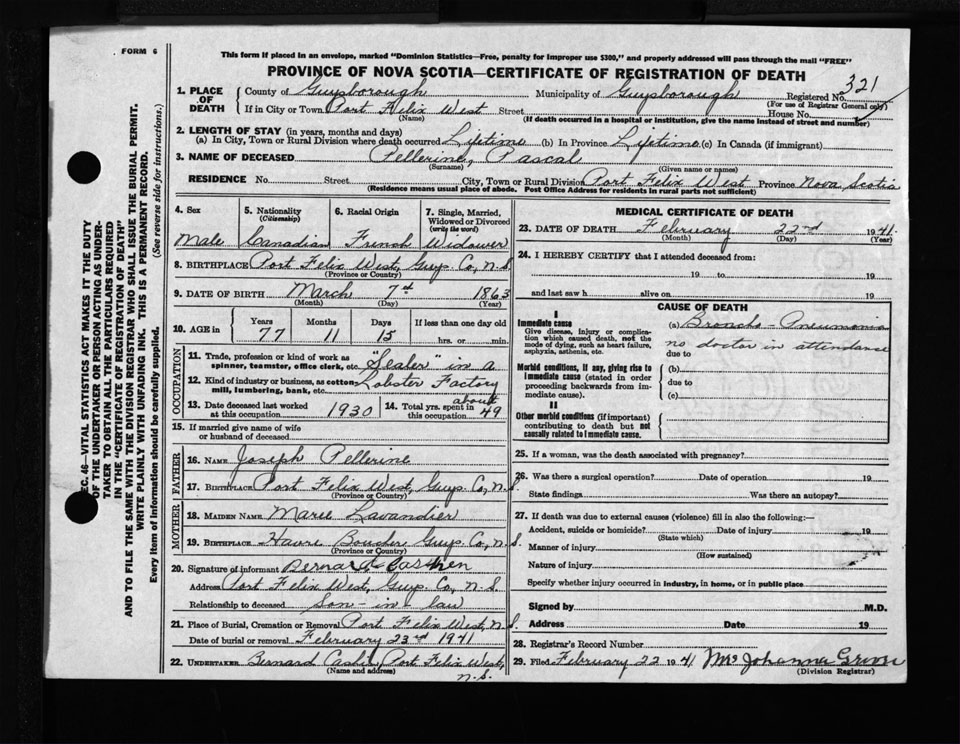 FORM 6
This form if placed in an envelope, marked "Dominion Statistics—Free, penalty for improper use $300," and properly addressed will pass through the mail "FREE"
PROVINCE OF NOVA SCOTIA—CERTIFICATE OF REGISTRATION OF DEATH
321
1. PLACE OF DEATH
County of Guysborough Municipality of Guysborough Registered No.
(For use of Registrar General only)
If in City or Town Port Felix West Street House No.
(Name) (If death occurred in a hospital or institution, give the name instead of street and number)
2. LENGTH OF STAY (in years, months and days)
(a) In City, Town or Rural Division where death occurred Lifetime (b) In Province Lifetime (c) In Canada (if immigrant)
3. NAME OF DECEASED Pellerine, Pascal
(Surname) (Given name or names)
RESIDENCE No. Street City, Town or Rural Division Port Felix West Province Nova Scotia
(Residence means usual place of abode. Post Office Address for residents in rural parts not sufficient)
4. Sex 5. Nationality (Citizenship) 6. Racial Origin 7. Single, Married, Widowed or Divorced (write the word)
Male Canadian French Widower
8. BIRTHPLACE Port Felix West, Guys. Co, N.S.
(Province or Country)
9. DATE OF BIRTH March 7th 1863
(Month) (Day) (Year)
10. AGE in Years Months Days If less than one day old
77 11 15 hrs. or min.
OCCUPATION
11. Trade, profession or kind of work as spinner, teamster, office clerk, etc. "Sealer" in a
12. Kind of industry or business, as cotton mill, lumbering, bank, etc. Lobster Factory
13. Date deceased last worked at this occupation 1930 14. Total yrs. spent in this occupation about 49
15. If married give name of wife or husband of deceased
FATHER
16. NAME Joseph Pellerine
17. BIRTHPLACE Port Felix West, Guys. Co, N.S.
(Province or Country)
MOTHER
18. MAIDEN NAME Marie Lavandier
19. BIRTHPLACE Havre Boucher Guys. Co, N.S.
(Province or Country)
20. Signature of informant Bernard
Address Port Felix West, Guys. Co, N.S.
Relationship to deceased Son-in-law
21. Place of Burial, Cremation or Removal Port Felix West, N.S.
Date of burial or removal February 23rd 1941
22. UNDERTAKER Bernard Port Felix West,
(Name and address) N.S.
MEDICAL CERTIFICATE OF DEATH
23. DATE OF DEATH February 22nd 1941
(Month) (Day) (Year)
24. I HEREBY CERTIFY that I attended deceased from:
19 to 19
and last saw h alive on 19
CAUSE OF DEATH
I
Immediate cause
Give disease, injury or complication which caused death, not the mode of dying, such as heart failure, asphyxia, asthenia, etc.
(a) Broncho-Pneumonia
no doctor in attendance
due to
Morbid conditions, if any, giving rise to immediate cause (stated in order proceeding backwards from immediate cause).
(b)
due to
(c)
II
Other morbid conditions (if important) contributing to death but not causally related to immediate cause.
25. If a woman, was the death associated with pregnancy?
26. Was there a surgical operation? Date of operation 19
State findings Was there an autopsy?
27. If death was due to external causes (violence) fill in also the following:—
Accident, suicide or homicide? Date of injury 19
(State which)
Manner of injury
(How sustained)
Nature of injury
Specify whether injury occurred in industry, in home, or in public place
Signed by M.D.
Address Date 19
28. Registrar's Record Number
29. Filed February 22 1941 Mrs Johanna
(Division Registrar)
SEC. 46—VITAL STATISTICS ACT MAKES IT THE DUTY
OF THE UNDERTAKER OR PERSON ACTING AS UNDER-
TAKER TO OBTAIN ALL THE PARTICULARS REQUIRED
IN THE "CERTIFICATE OF REGISTRATION OF DEATH"
AND TO FILE THE SAME WITH THE DIVISION REGISTRAR WHO SHALL ISSUE THE BURIAL PERMIT.
WRITE PLAINLY WITH UNFADING INK. THIS IS A PERMANENT RECORD.
Every item of information should be carefully supplied. (See reverse side for instructions.)